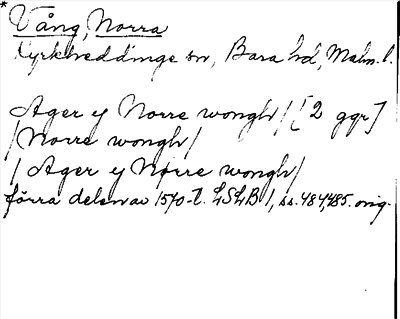 * Vång, Norra
Kyrkheddinge sn, Bara hd, Malm. l.
Ager y Norre wongh/ [2 ggr]
/Norre wongh/
/ Ager y Nørre wongh/
förra delen av 1570-t. LSLB 1, ss. 484,485. orig.